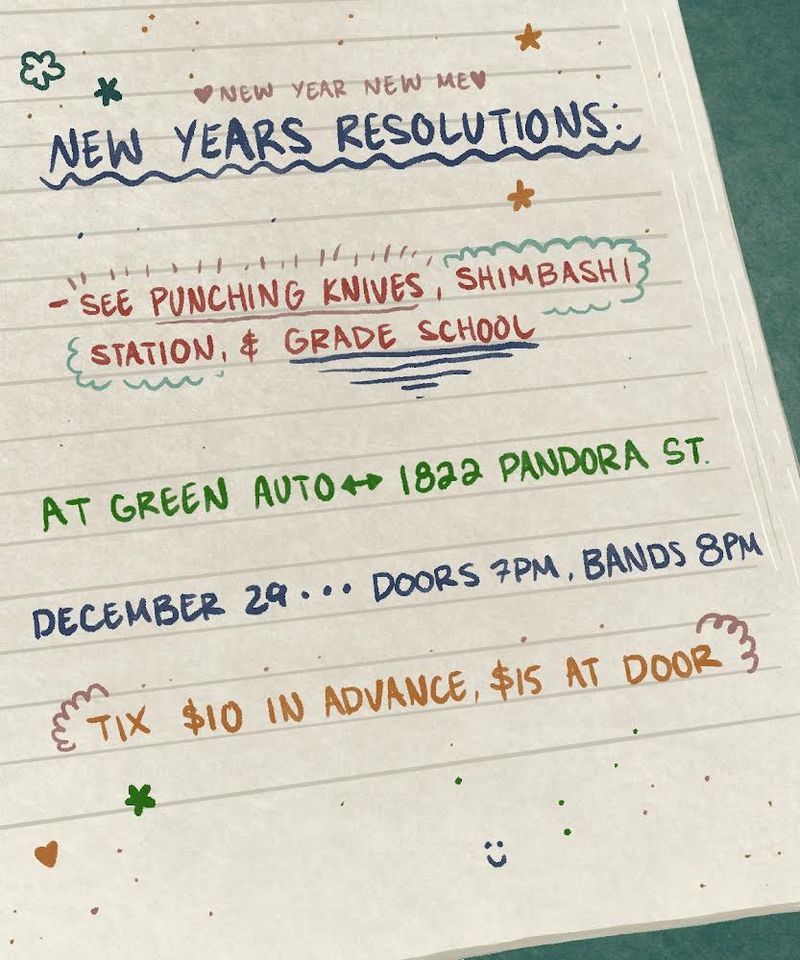 ♥NEW YEAR NEW ME♥
NEW YEARS RESOLUTIONS:
- SEE PUNCHING KNIVES, SHIMBASHI
STATION, & GRADE SCHOOL
AT GREEN AUTO ↔ 1822 PANDORA ST.
DECEMBER 29... DOORS 7PM, BANDS 8PM
TIX $10 IN ADVANCE, $15 AT DOOR